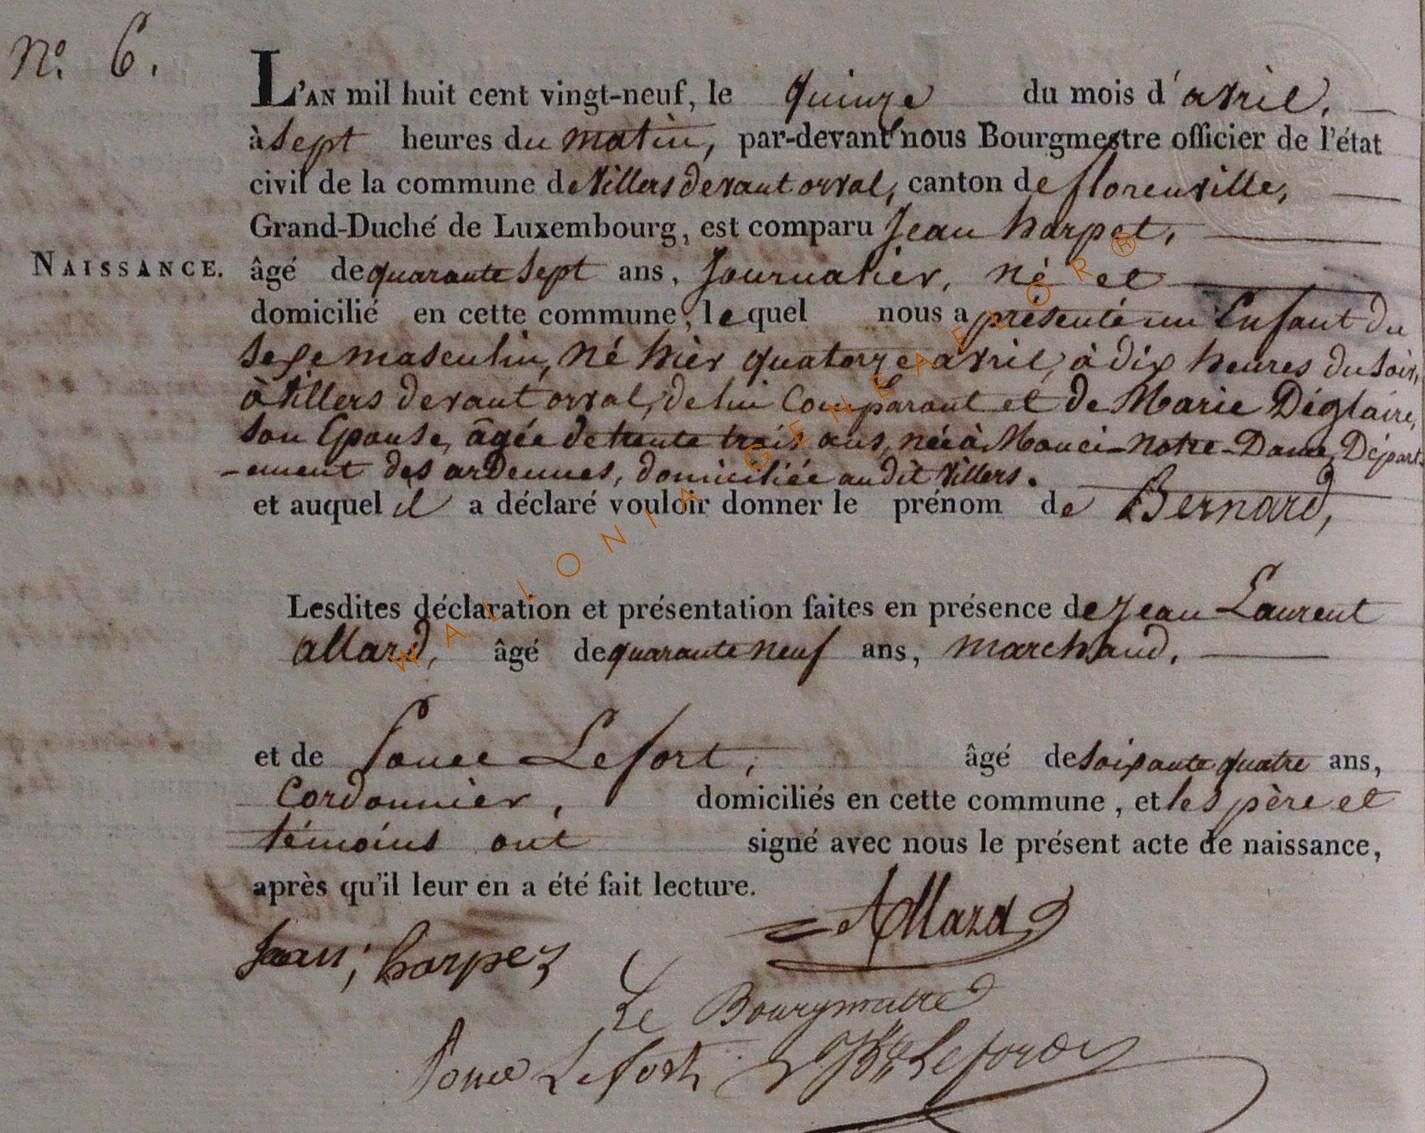 nº. 6.
L'AN mil huit cent vingt-neuf, le quinze du mois d'avril,
à sept heures du matin, par-devant nous Bourgmestre officier de l'état
civil de la commune de Villers devant orval, canton de florenville,
Grand-Duché de Luxembourg, est comparu Jean harpet,
NAISSANCE.
âgé de quarante sept ans, Journalier, né et
domicilié en cette commune, lequel nous a présenté un Enfant du
sexe masculin, né hier quatorze avril, à dix heures du soir,
à Villers devant orval, de lui Comparant et de Marie Déglaire,
son Epouse, âgée de trente trois ans, née à Mouci-notre-Dame, Départ-
-ement des ardennes, domiciliée audit Villers.
et auquel il a déclaré vouloir donner le prénom de Bernard,
Lesdites déclaration et présentation faites en présence de Jean Laurent
allard, âgé de quarante neuf ans, marchand,
et de Ponce Lefort, âgé de soixante quatre ans,
Cordonnier, domiciliés en cette commune, et les père et
témoins ont signé avec nous le présent acte de naissance,
après qu'il leur en a été fait lecture.
Allard
Jean, harpez
Le Bourgmetre
Ponce Lefort
WALLONIA GENEALOR®